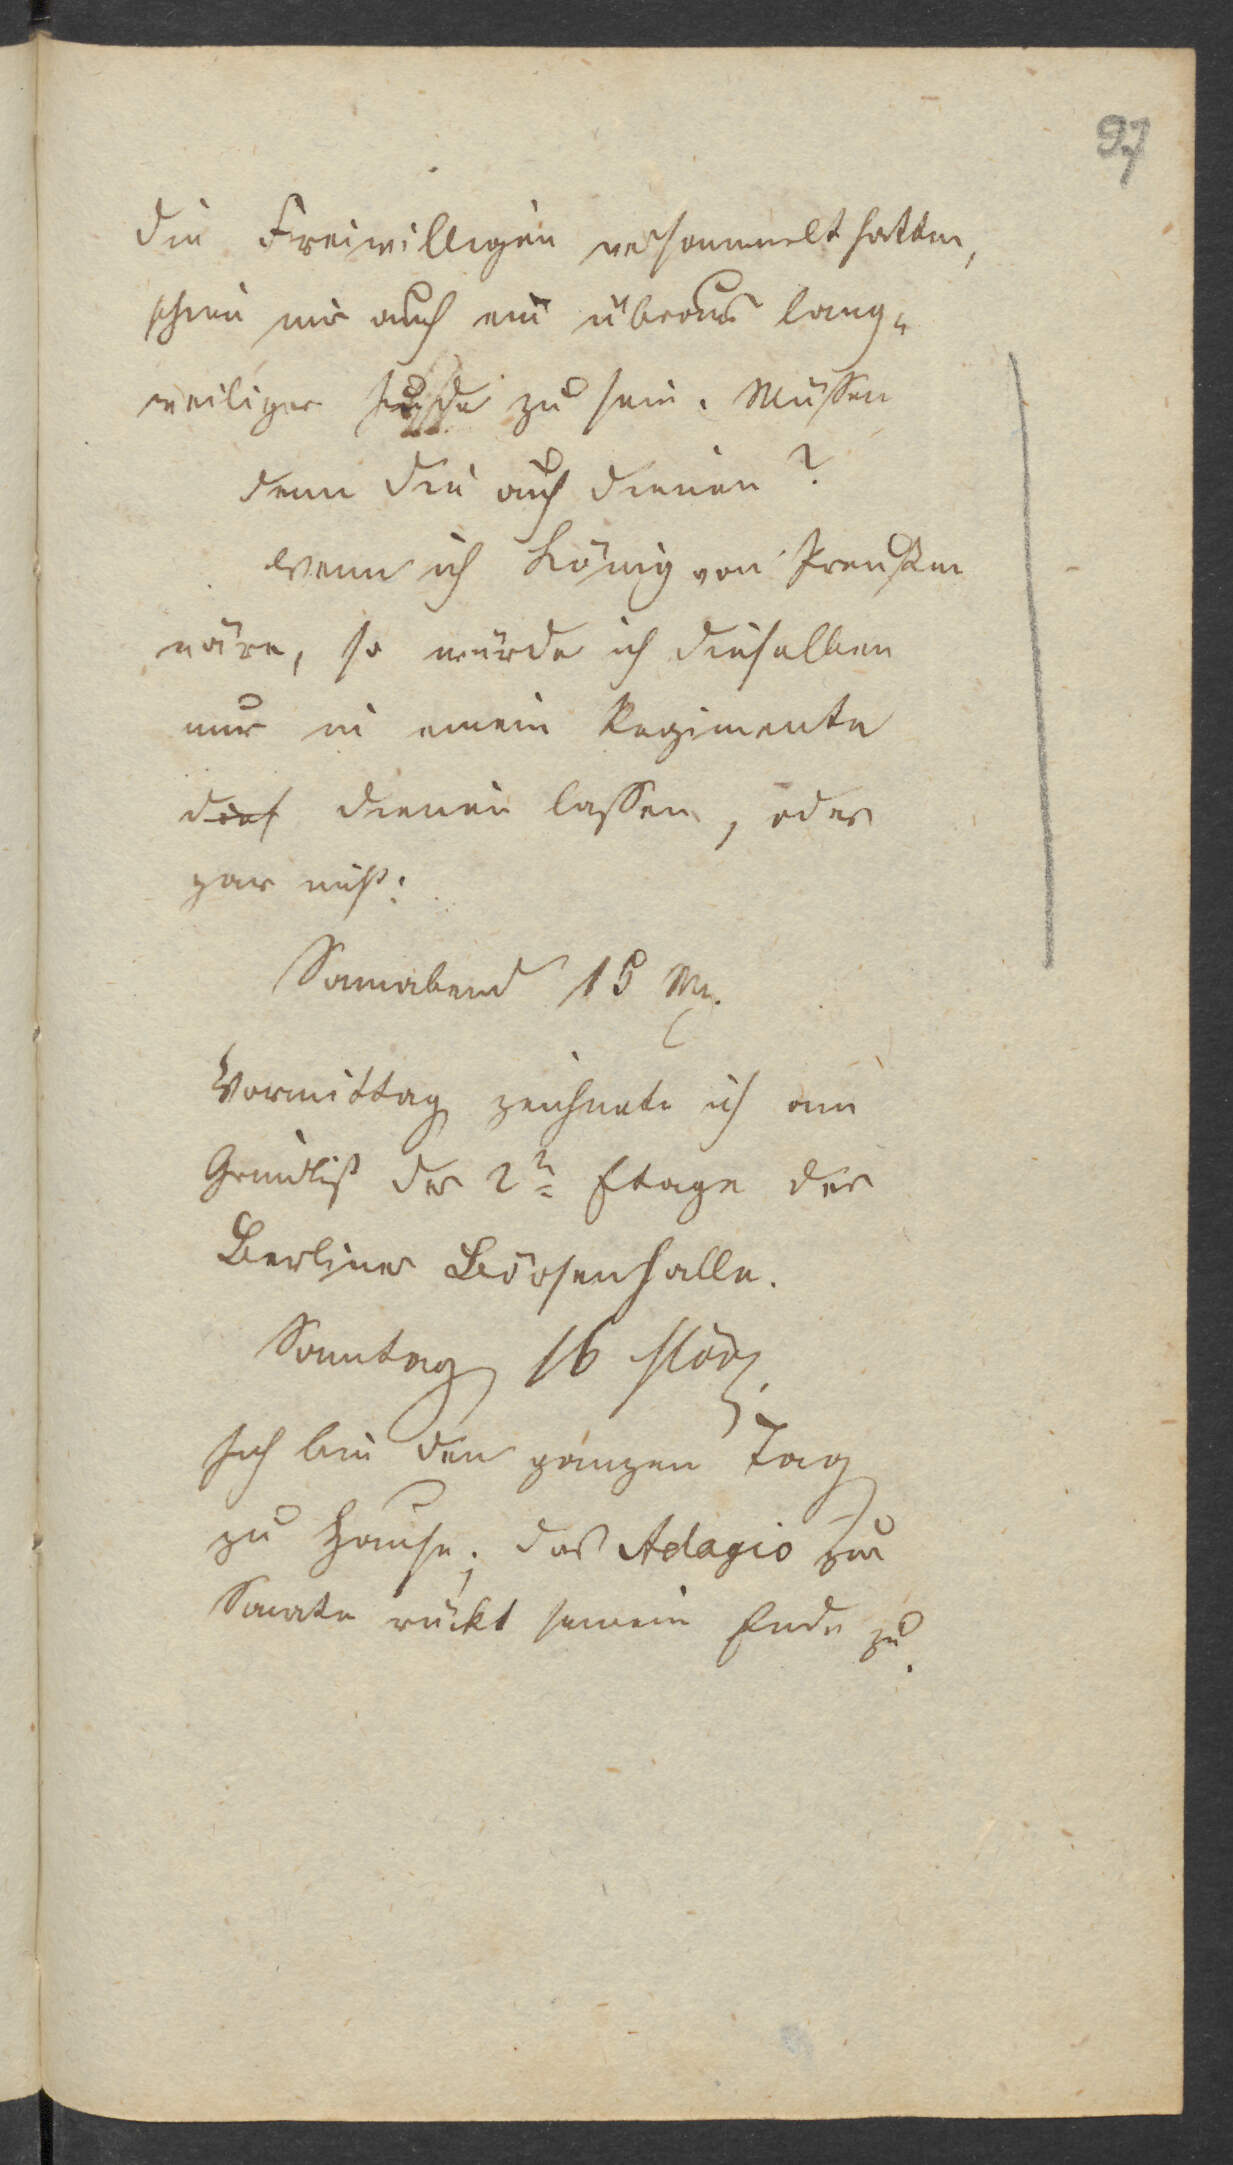 97
die Freiwilligen versammelt hatten,
schien mir auch ein überaus lang-
weiliger zu sein. Müssen
denn die auch dienen?
Wenn ich König von Preußen
wäre, so würde ich dieselben
nur in einem Regimente
dienen lassen, oder
gar nicht.
Sonnabend 15 M.
Vormittag zeichnete ich am
Grundriß der 2n Etage der
Berliner Börsenhalle.
Sonntag 16 März.
Ich bin den ganzen Tag
zu Hause; das Adagio zur
Sonate rückt seinem Ende zu.